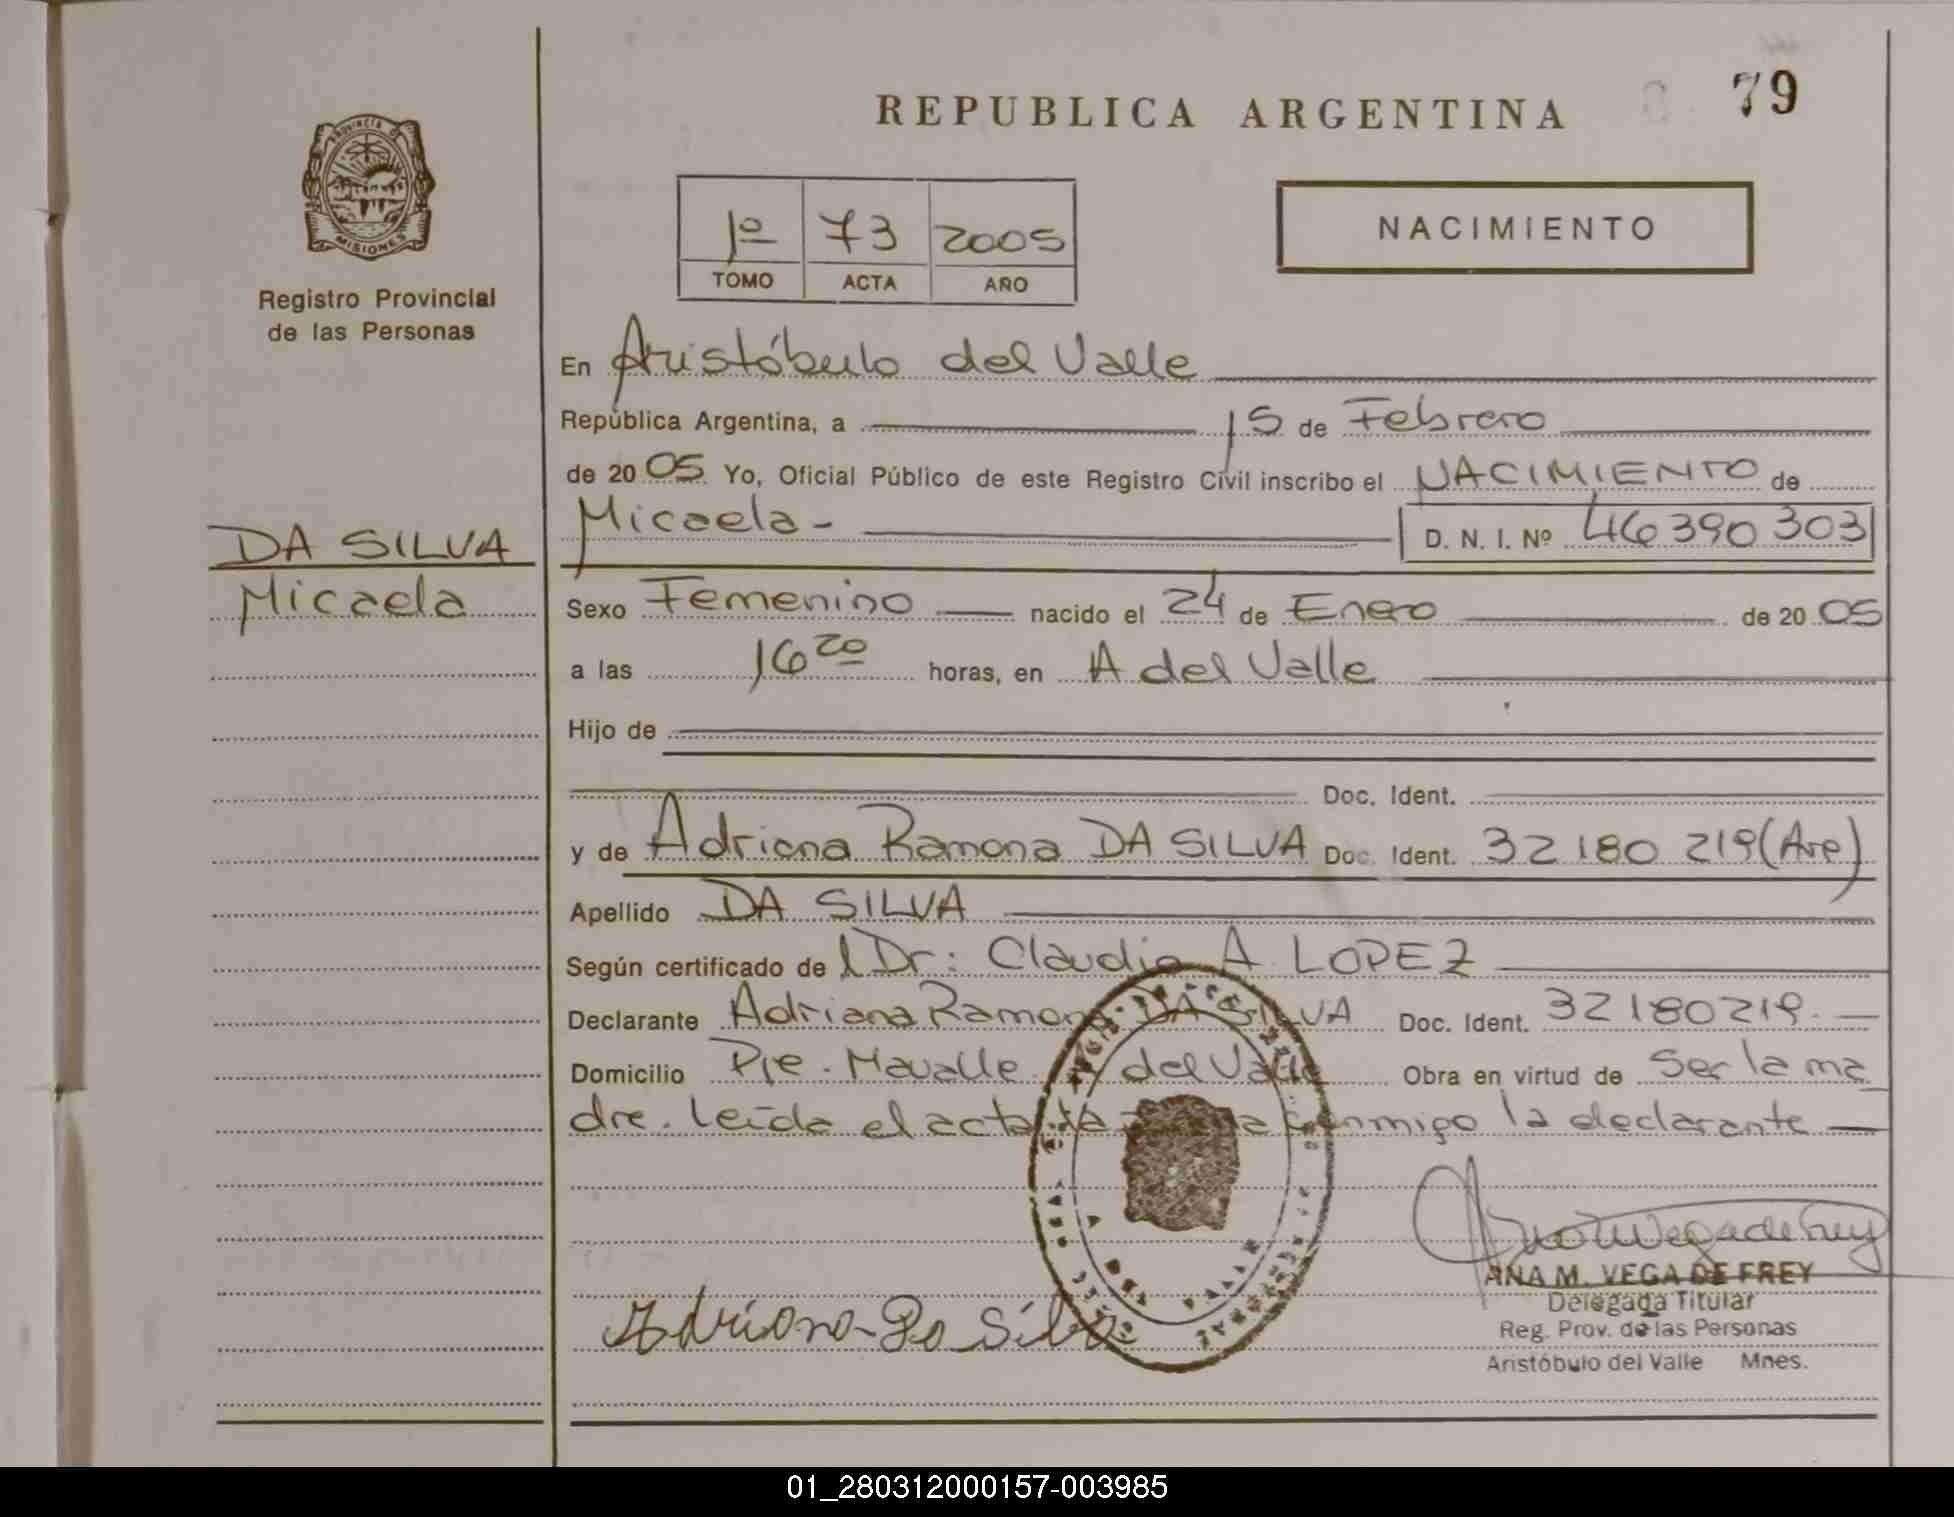 REPUBLICA ARGENTINA
79
PROVINCIA DE
MISIONES
Registro Provincial
de las Personas
1º 73 2005
TOMO ACTA AÑO
NACIMIENTO
En Aristóbulo del Valle
República Argentina, a 15 de Febrero
de 20 05 Yo, Oficial Público de este Registro Civil inscribo el NACIMIENTO de
Micaela - D. N. I. Nº 46 390 303
DA SILVA
Micaela
Sexo Femenino nacido el 24 de Enero de 20 05
a las 16 20 horas, en A del Valle
Hijo de
Doc. Ident.
y de Adriana Ramona DA SILVA Doc. Ident. 32 180 219 (Are)
Apellido DA SILVA
Según certificado de l Dr: Claudio A. LOPEZ
Declarante Adriana Ramona DA SILVA Doc. Ident. 32180219.
Domicilio Pje. Mavalle del Valle Obra en virtud de ser la ma
dre. Leída el acta la conmigo la declarante
Adriana Da Silva
ANA M. VEGA DE FREY
Delegada Titular
Reg. Prov. de las Personas
Aristóbulo del Valle Mnes.
01_280312000157-003985